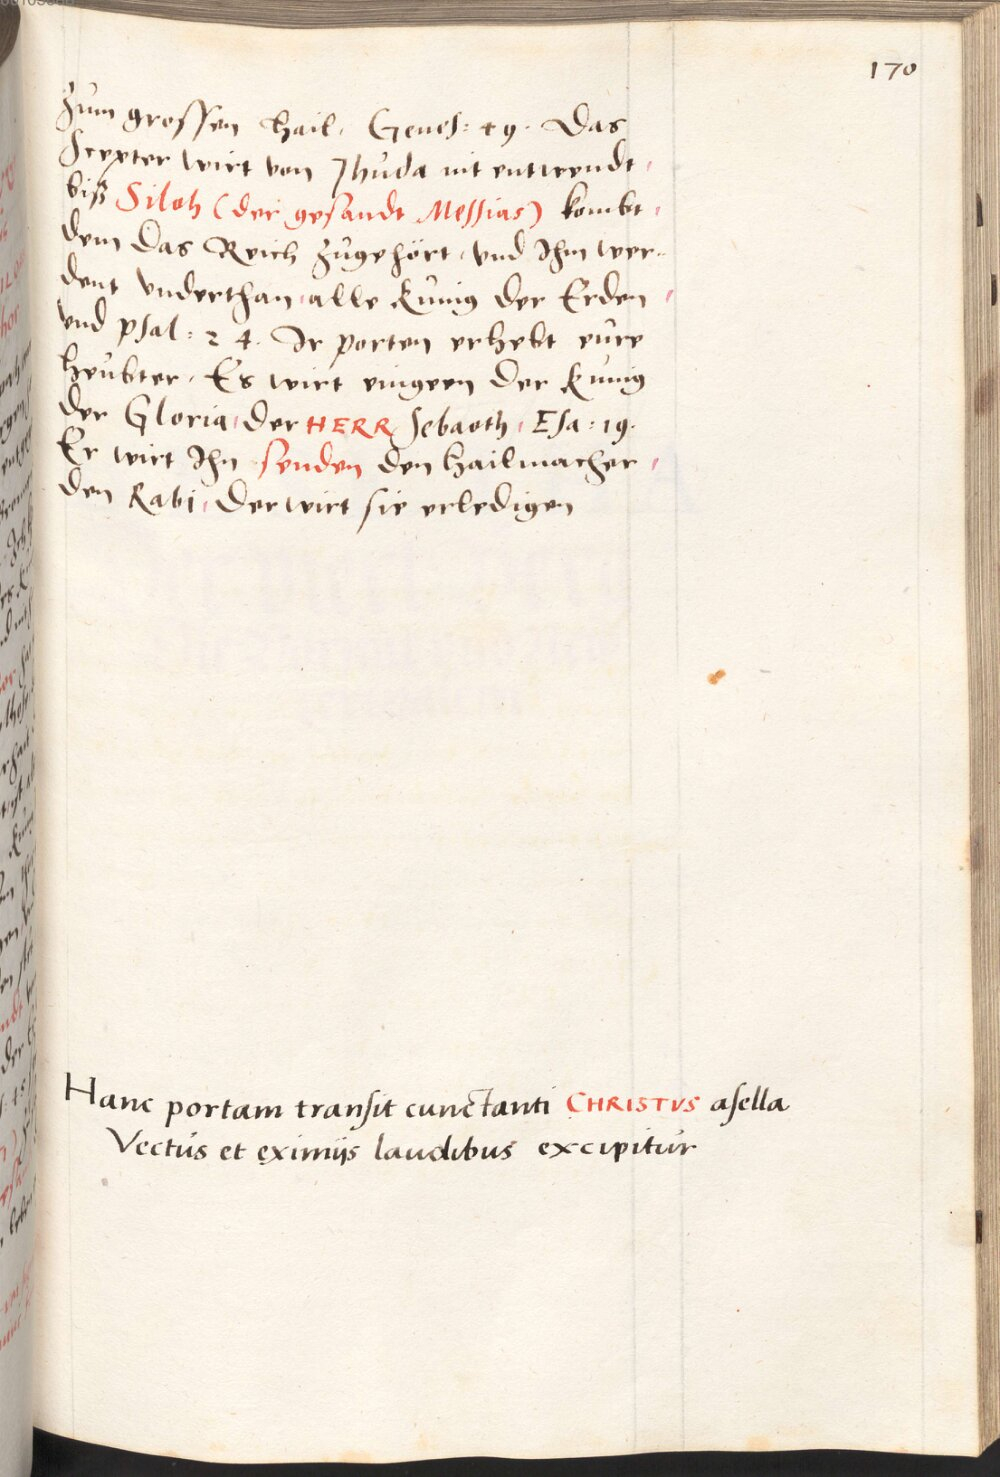 170
Zum grossen Hail. Genes: 49. Das
Scepter wirt von Jhuda nit entwendt,
biß Siloh (der gesandt Messias) kombt,
dem das Reich zugehört, vnd Ihm wer-
dent vnderthan, alle Künig der Erden,
vnd psal: 24. Ir porten erhebt eure
heubter, Es wirt eingeen der Kunig
der Gloria, der HERR Sebaoth, Esa: 19.
Er wirt Ihn senden den Hailmacher,
den Rabi, der wirt sie erledigen
Hanc portam transit cunctanti CHRISTVS asella
Vectus et eximijs laudibus excipitur